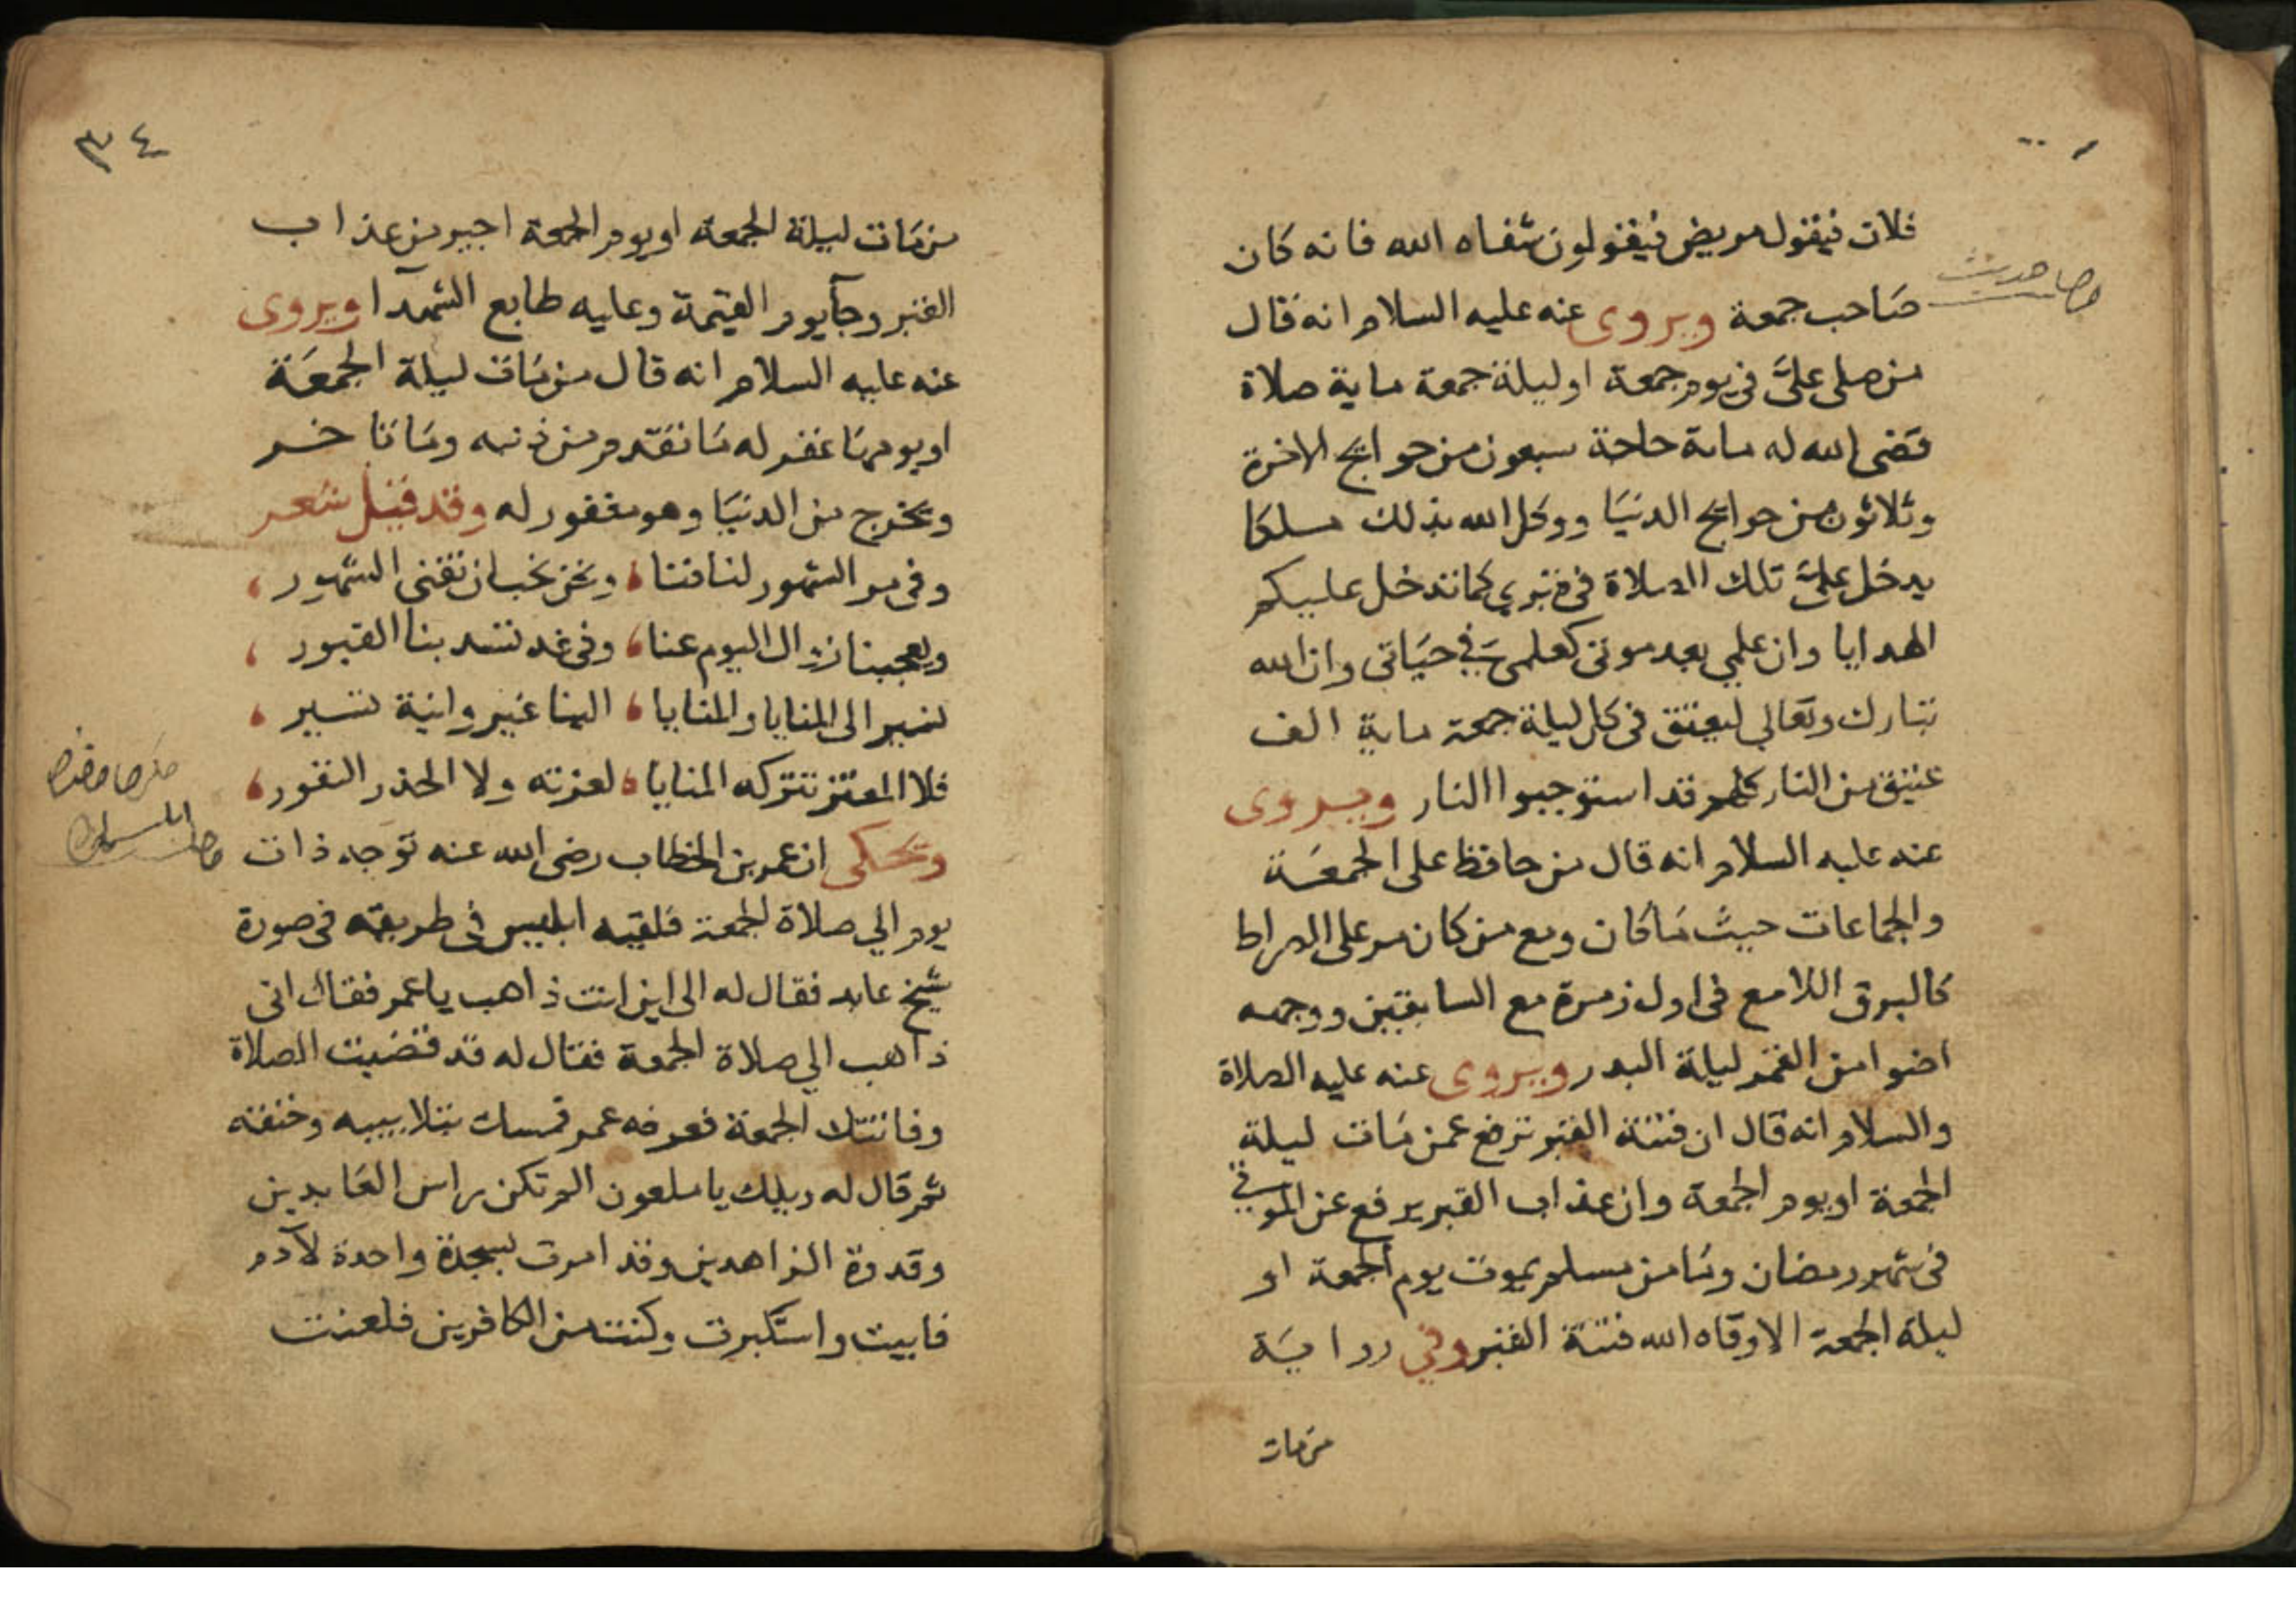 فلان فيقول مريض فيقولون شفاه الله فانه كان
صاحب جمعة ويروى عنه عليه السلام انه قال
من صلى علىّ فى يوم جمعة او ليلة جمعة ماية صلاة
قضى الله له ماية حاجة سبعون من حوايج الاخرة
وثلاثون من حوايج الدنيا ووكل الله بذلك ملكا
يدخل علىّ تلك الصلاة فى قبرى كما تدخل عليكم
الهدايا وان علمي بعد موتى كعلمي في حياتى وان الله
تبارك وتعالى ليعتق فى كل ليلة جمعة ماية الف
عتيق من النار كلهم قد استوجبوا النار ويروى
عنه عليه السلام انه قال من حافظ على الجمعة
والجماعات حيث ما كان ومع من كان مر على الصراط
كالبرق اللامع فى اول زمرة مع السابقين ووجهه
اضوا من القمر ليلة البدر ويروى عنه عليه الصلاة
والسلام انه قال ان فتنة القبر ترفع عمن مات ليلة
الجمعة او يوم الجمعة وان عذاب القبر يرفع عن الموتى
فى شهر رمضان وما من مسلم يموت يوم الجمعة او
ليلة الجمعة الا وقاه الله فتنة القبر وفي رواية
من مات
٣٤
من مات ليلة الجمعة او يوم الجمعة اجير من عذاب
القبر وجآ يوم القيمة وعليه طابع الشهدآ ويروى
عنه عليه السلام انه قال من مات ليلة الجمعة
او يومها غفر له ما تقدم من ذنبه وما تاخر
ويخرج من الدنيا وهو مغفور له وقد قيل شعر
وفى مر الشهور لنا فنا ، ونحن نحب ان تفنى الشهور ،
ويعجبنا زوال اليوم عنا ، وفى غد تشد بنا القبور ،
نسير الى المنايا والمنايا ، الينا غير وانية تسير ،
فلا المعتز تتركه المنايا ، لعزته ولا الحذر النفور ،
ويحكى ان عمر بن الخطاب رضى الله عنه توجه ذات
يوم الي صلاة الجمعة فلقيه ابليس فى طريقه فى صورة
شيخ عابد فقال له الى اين انت ذاهب يا عمر فقال انى
ذاهب الي صلاة الجمعة فقال له قد قضيت الصلاة
وفاتتك الجمعة فعرفه عمر فمسك بتلابيبه وخنقه
ثم قال له ويلك يا ملعون الم تكن راس العابدين
وقدوة الزاهدين وقد امرت بسجدة واحدة لآدم
فابيت واستكبرت وكنت من الكافرين فلعنت